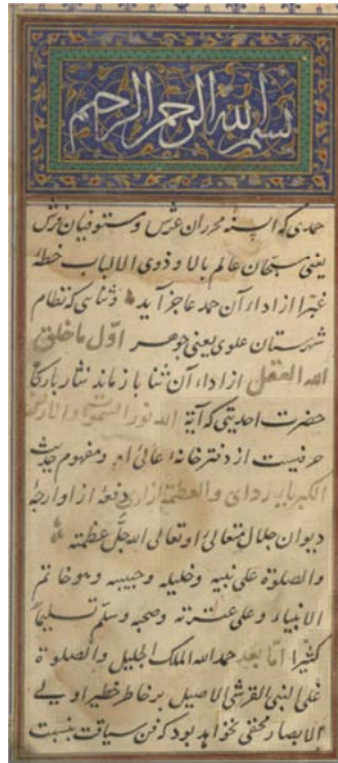 بسم الله الرحمن الرحیم
حمدی که السنه محرران عرش و مستوفیان فرش
یعنی سبحان عالم بالا و ذوی الالباب خطهٔ
غبرا از اداء آن حمد عاجز آید و ثنایی که نظام
شهرستان علوی یعنی جوهر اول ما خلق
الله العقل از اداء آن ثنا باز ماند نثار بارکاه
حضرت احدیتی که آیة الله نور السموات والارض
حرفیست از دفترخانهٔ عالی او و مفهوم حدیث
الکبریاء ردائی والعظمة ازاری دفعهٔ از اوارجهٔ
دیوان جلال متعالی او تعالی الله جل عظمته
والصلوة علی نبیه وخلیله وحبیبه وهو خاتم
الانبیاء وعلی عترته وصحبه وسلم تسلیماً
کثیرا اما بعد حمد الله الملک الجلیل والصلوة
علی النبی القرشی الاصیل بر خاطر خطیر اولی
الابصار مخفی نخواهد بود که فن سیاقت بنسبت